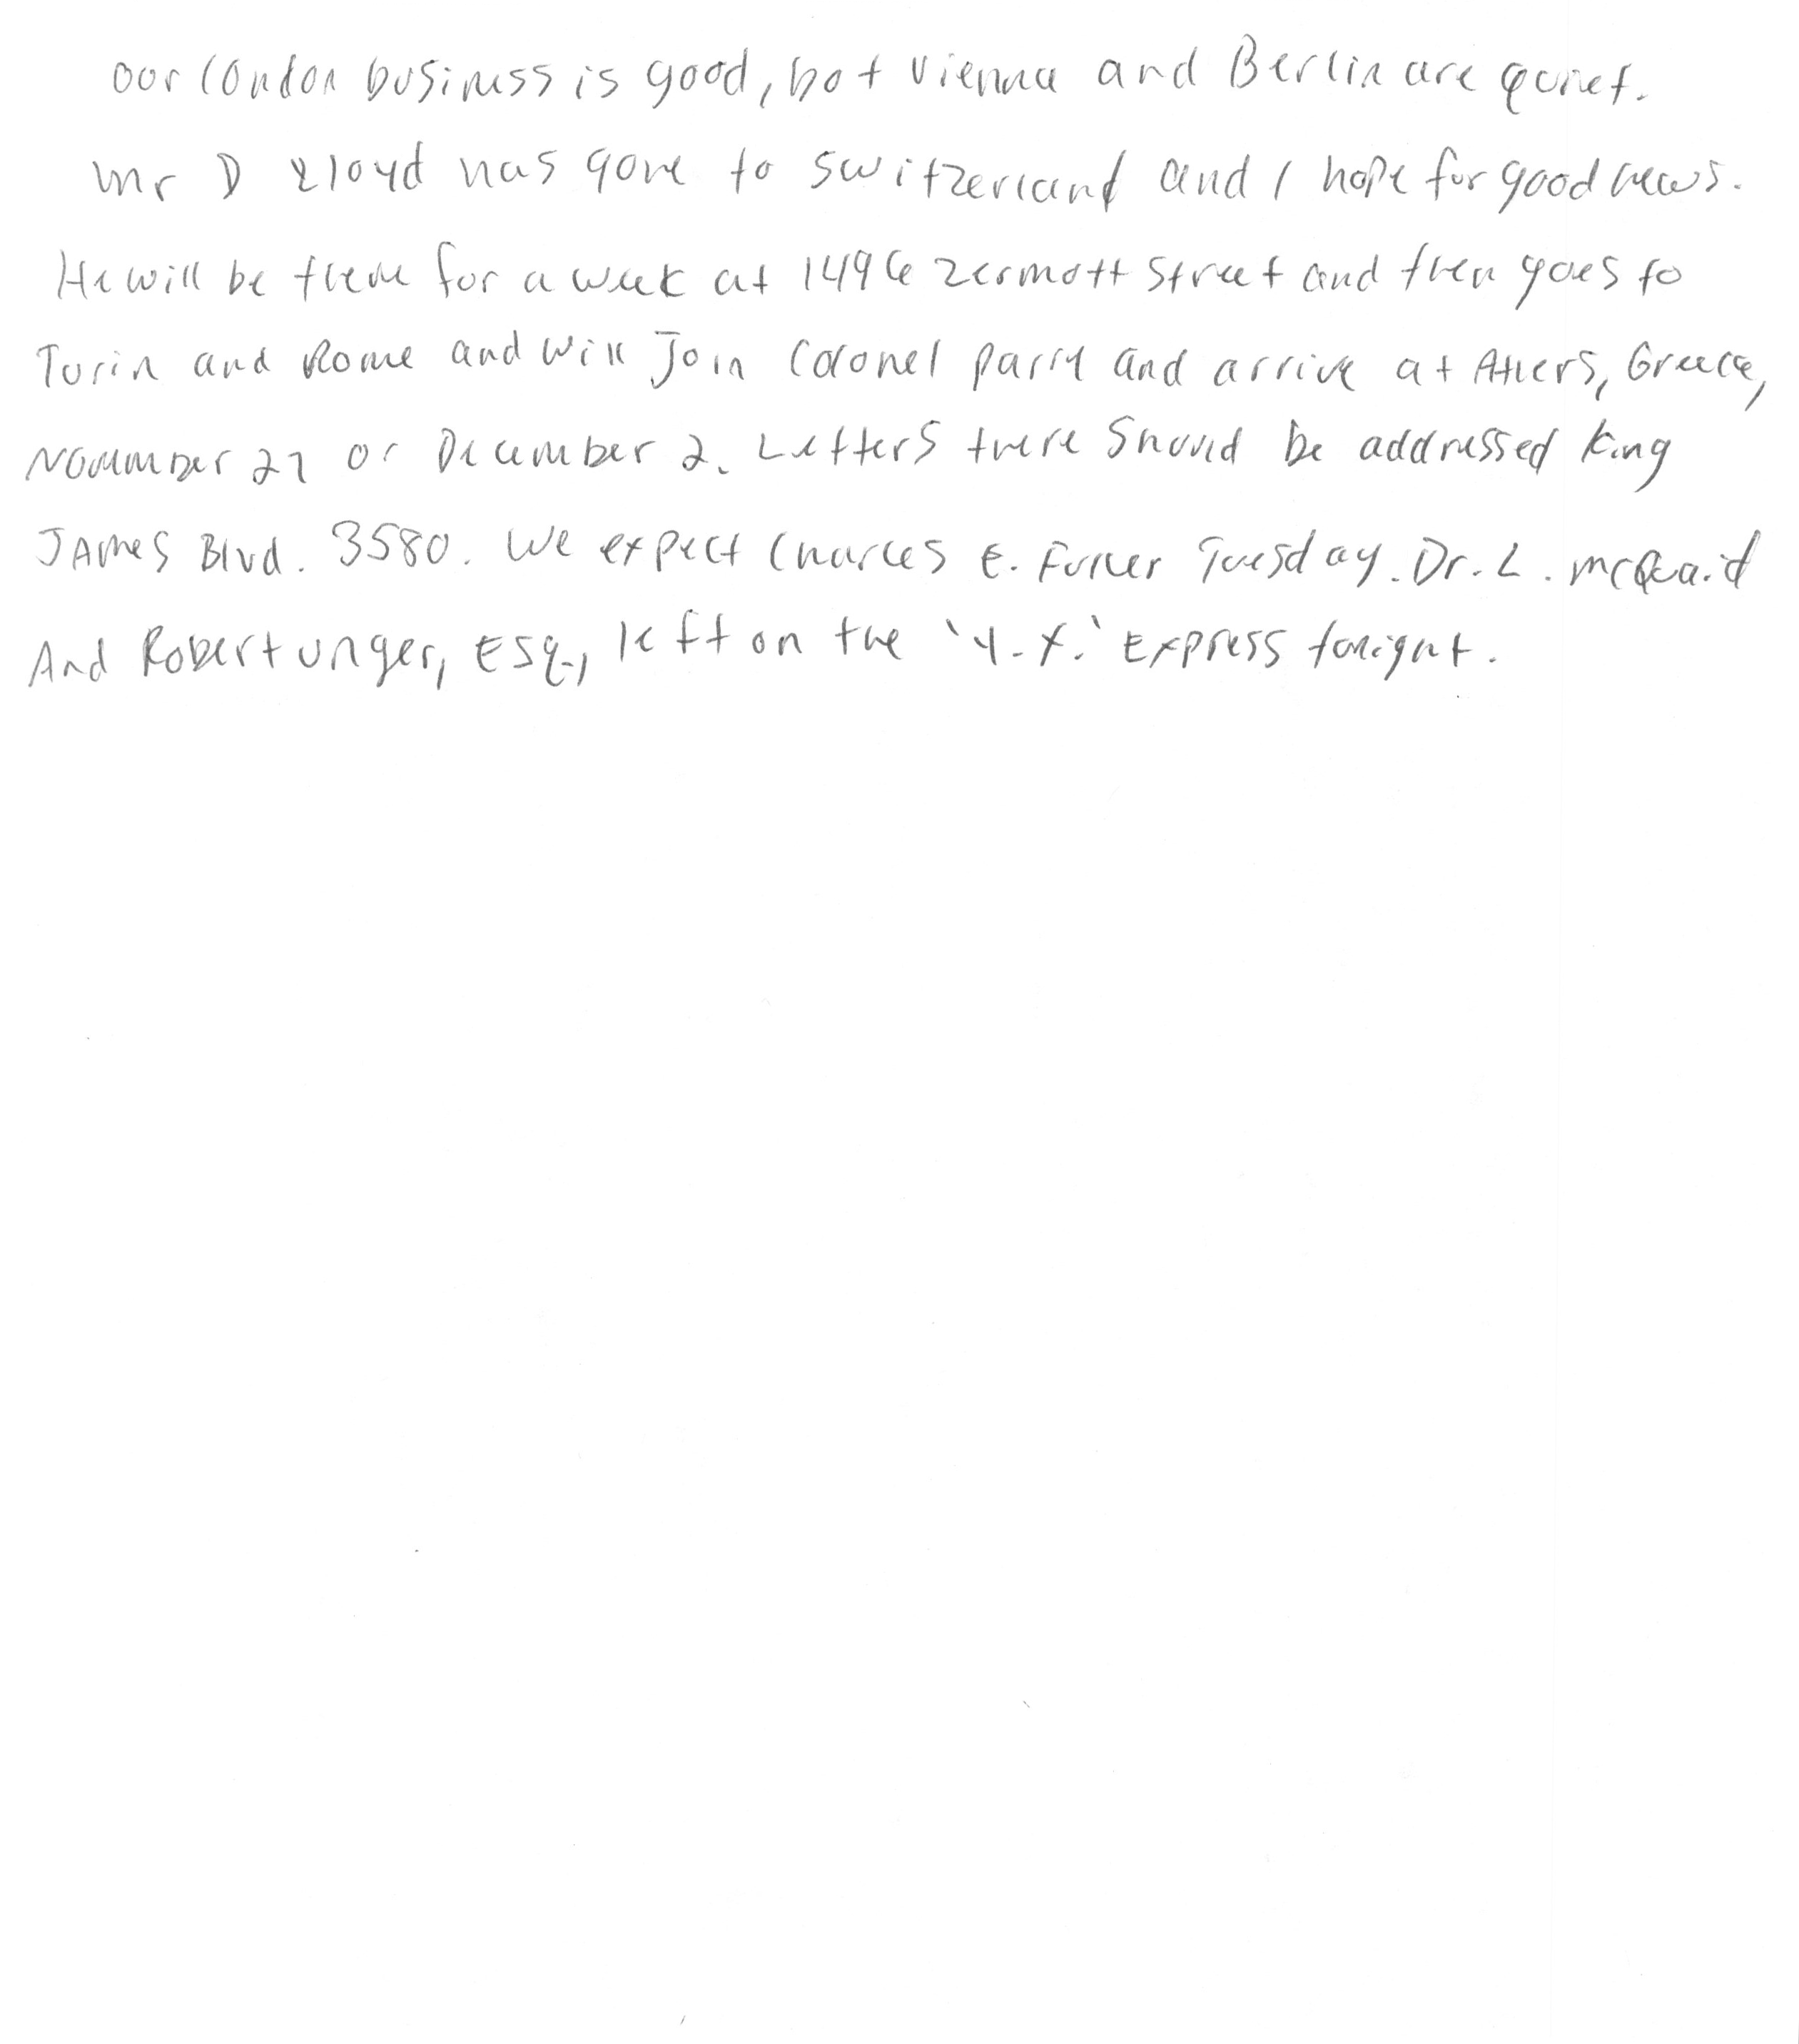 Our London business is good, but Vienna and Berlin are quiet.
Mr D Lloyd has gone to Switzerland and I hope for good news.
He will be there for a week at 1496 Zermott Street and then goes to
Turin and Rome and will Join Colonel Parry and arrive at Athens, Greece,
November 27 or December 2. Letters there Should be addressed King
James Blvd. 3580. We expect Charles E. Fuller Tuesday. Dr. L. McQuaid
And Robert Unger, Esq., left on the 'Y.X.' Express tonight.